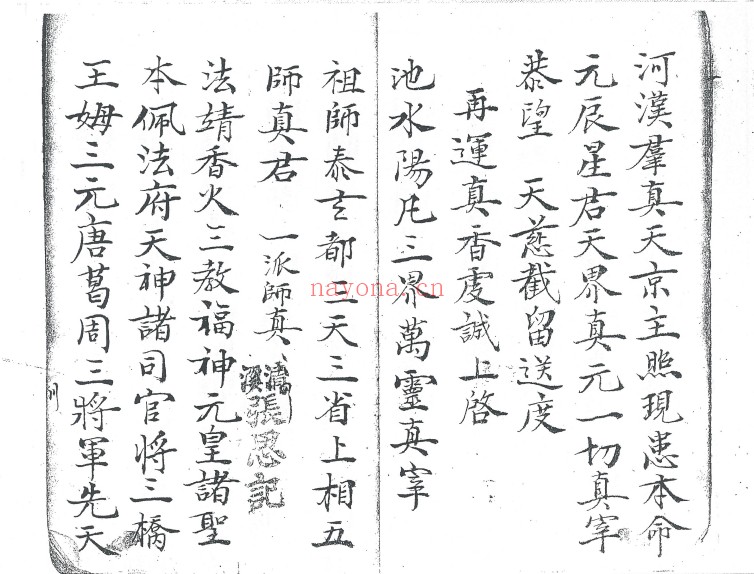 河漢羣真天京主照現患本命
元辰星君天界真元一切真宰
恭望　天慈截留送度
再運真香虔誠上啓
池水陽凡三界萬靈真宰
祖師泰玄都　天三省上相五
師真君　一派師真
溪
張思記
法靖香火三教福神元皇諸聖
本佩法府天神諸司官將三橋
王姆三元唐葛周三將軍先天
nayona.cn